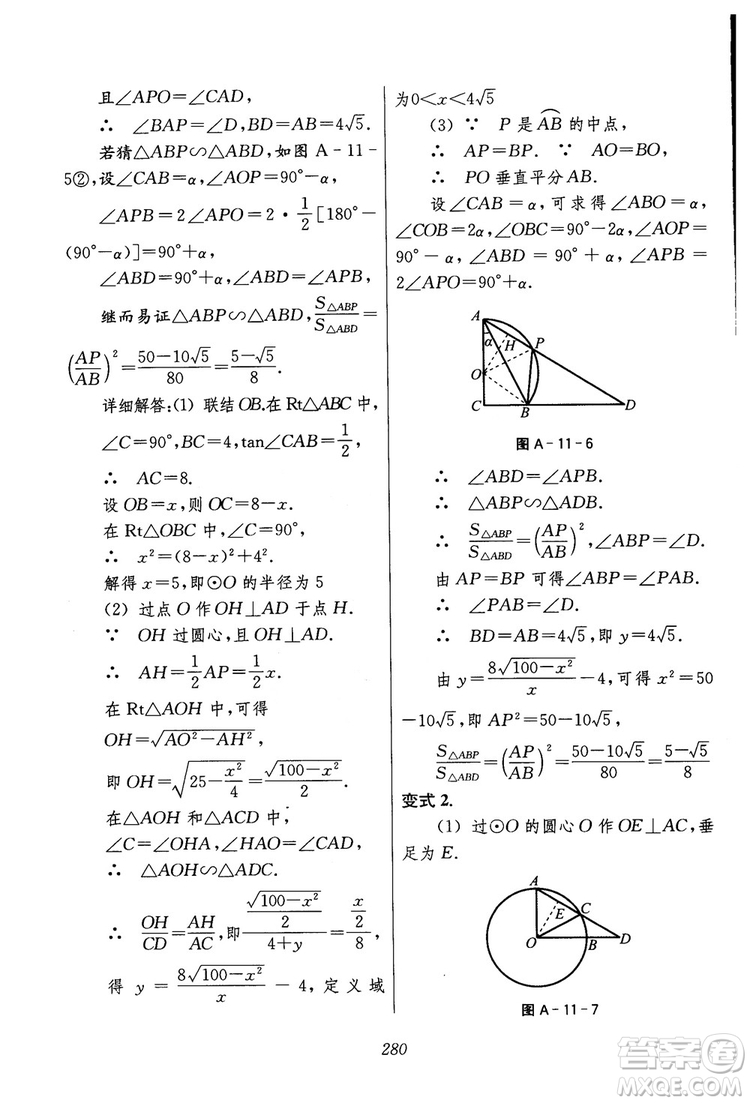 且∠APO=∠CAD,
∴ ∠BAP=∠D,BD=AB=4√5.
若猜△ABP∽△ABD,如图 A-11-
5②,设∠CAB=α,∠AOP=90°-α,
∠APB=2∠APO=2·1/2[180°-
(90°-α)]=90°+α,
∠ABD=90°+α,∠ABD=∠APB,
继而易证△ABP∽△ABD,S△ABP/S△ABD=
(AP/AB)²=(50-10√5)/80=(5-√5)/8.
详细解答:(1) 联结OB.在Rt△ABC中,
∠C=90°,BC=4,tan∠CAB=1/2,
∴ AC=8.
设OB=x,则OC=8-x.
在Rt△OBC中,∠C=90°,
∴ x²=(8-x)²+4².
解得x=5,即⊙O的半径为5
(2) 过点O作OH⊥AD于点H.
∵ OH过圆心,且OH⊥AD.
∴ AH=1/2AP=x/2.
在Rt△AOH中,可得
OH=√(AO²-AH²),
即OH=√(25-x²/4)=√(100-x²)/2.
在△AOH和△ACD中,
∠C=∠OHA,∠HAO=∠CAD,
∴ △AOH∽△ADC.
∴ OH/CD=AH/AC,即(√(100-x²)/2)/(4+y)=(x/2)/8,
得 y=8√(100-x²)/x-4,定义域
为0<x<4√5
(3) ∵ P是AB⌒的中点,
∴ AP=BP. ∵ AO=BO,
∴ PO垂直平分AB.
设∠CAB=α,可求得∠ABO=α,
∠COB=2α,∠OBC=90°-2α,∠AOP=
90°-α,∠ABD=90°+α,∠APB=
2∠APO=90°+α.
A
α
H
P
O
C
B
D
图 A-11-6
∴ ∠ABD=∠APB.
∴ △ABP∽△ADB.
∴ S△ABP/S△ABD=(AP/AB)²,∠ABP=∠D.
由AP=BP可得∠ABP=∠PAB.
∴ ∠PAB=∠D.
∴ BD=AB=4√5,即y=4√5.
由 y=8√(100-x²)/x-4,可得x²=50
-10√5,即AP²=50-10√5,
S△ABP/S△ABD=(AP/AB)²=(50-10√5)/80=(5-√5)/8
变式 2.
(1) 过⊙O的圆心O作OE⊥AC,垂
足为E.
A
E
C
O
B
D
图 A-11-7
280
答案圈
MXQE.COM